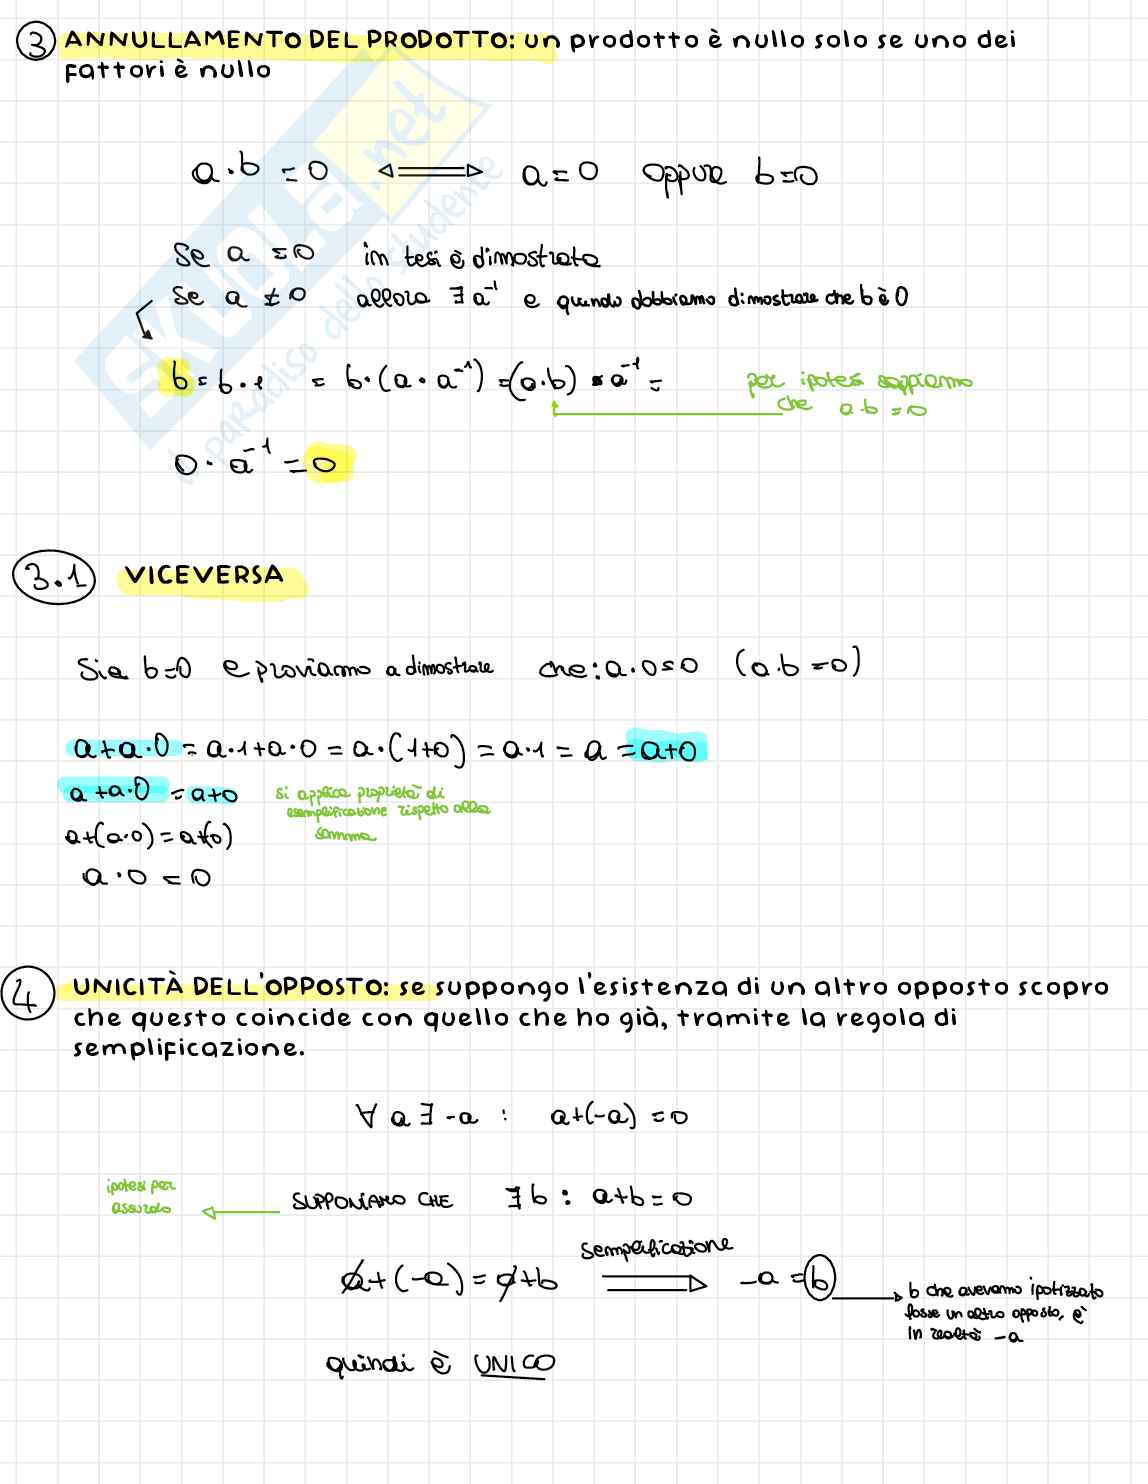 3 ANNULLAMENTO DEL PRODOTTO: un prodotto è nullo solo se uno dei
fattori è nullo
a·b = 0 ⟺ a=0 oppure b=0
Se a = 0 la tesi è dimostrata
Se a ≠ 0 allora ∃ a⁻¹ e quindi dobbiamo dimostrare che b è 0
b = b·1 = b·(a·a⁻¹) = (a·b)·a⁻¹ =
per ipotesi sappiamo
che a·b = 0
0·a⁻¹ = 0
3.1 VICEVERSA
Sia b=0 e proviamo a dimostrare che: a·0=0 (a·b=0)
a+a·0 = a·1+a·0 = a·(1+0) = a·1 = a = a+0
a+a·0 = a+0
si applica proprietà di
semplificazione rispetto alla
somma
a+(a·0) = a+(0)
a·0 = 0
4 UNICITÀ DELL'OPPOSTO: se suppongo l'esistenza di un altro opposto scopro
che questo coincide con quello che ho già, tramite la regola di
semplificazione.
∀ a ∃ -a : a+(-a) = 0
ipotesi per
assurdo
SUPPONIAMO CHE ∃ b : a+b=0
semplificazione
a+(-a) = a+b ⟹ -a = b
b che avevamo ipotizzato
fosse un altro opposto, è
in realtà -a
quindi è UNICO
SKUOLA.net
il paradiso dello studente